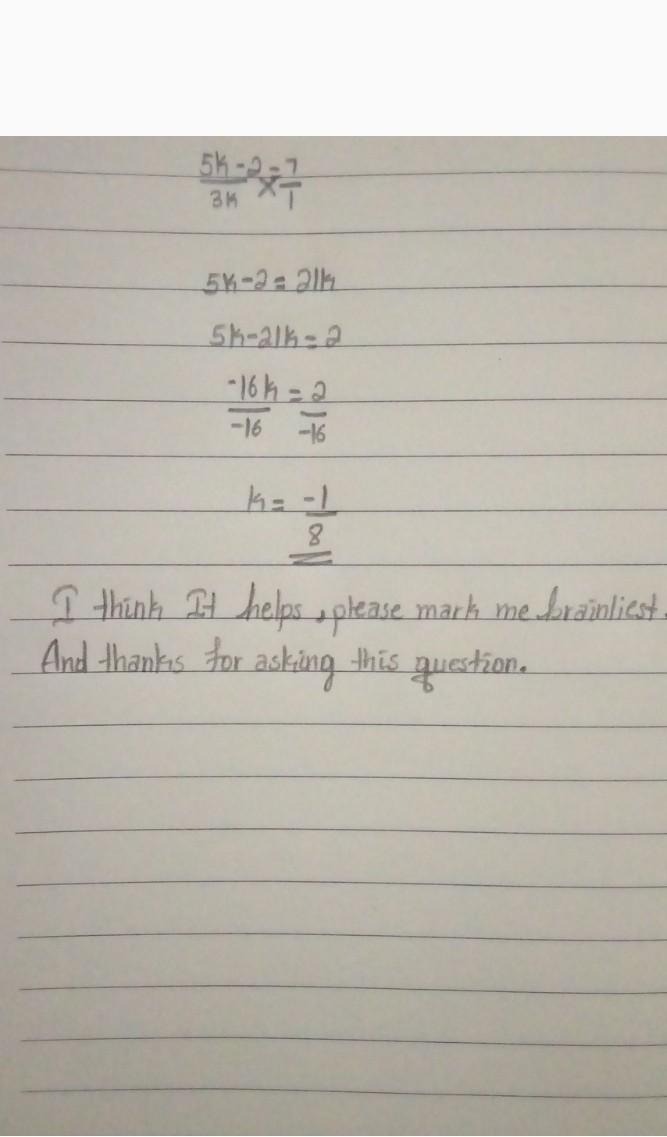 5k-2 = 7
3k × 1
5k-2 = 21k
5k-21k = 2
-16k = 2
-16 -16
k = -1
8
I think It helps, please mark me brainliest.
And thanks for asking this question.